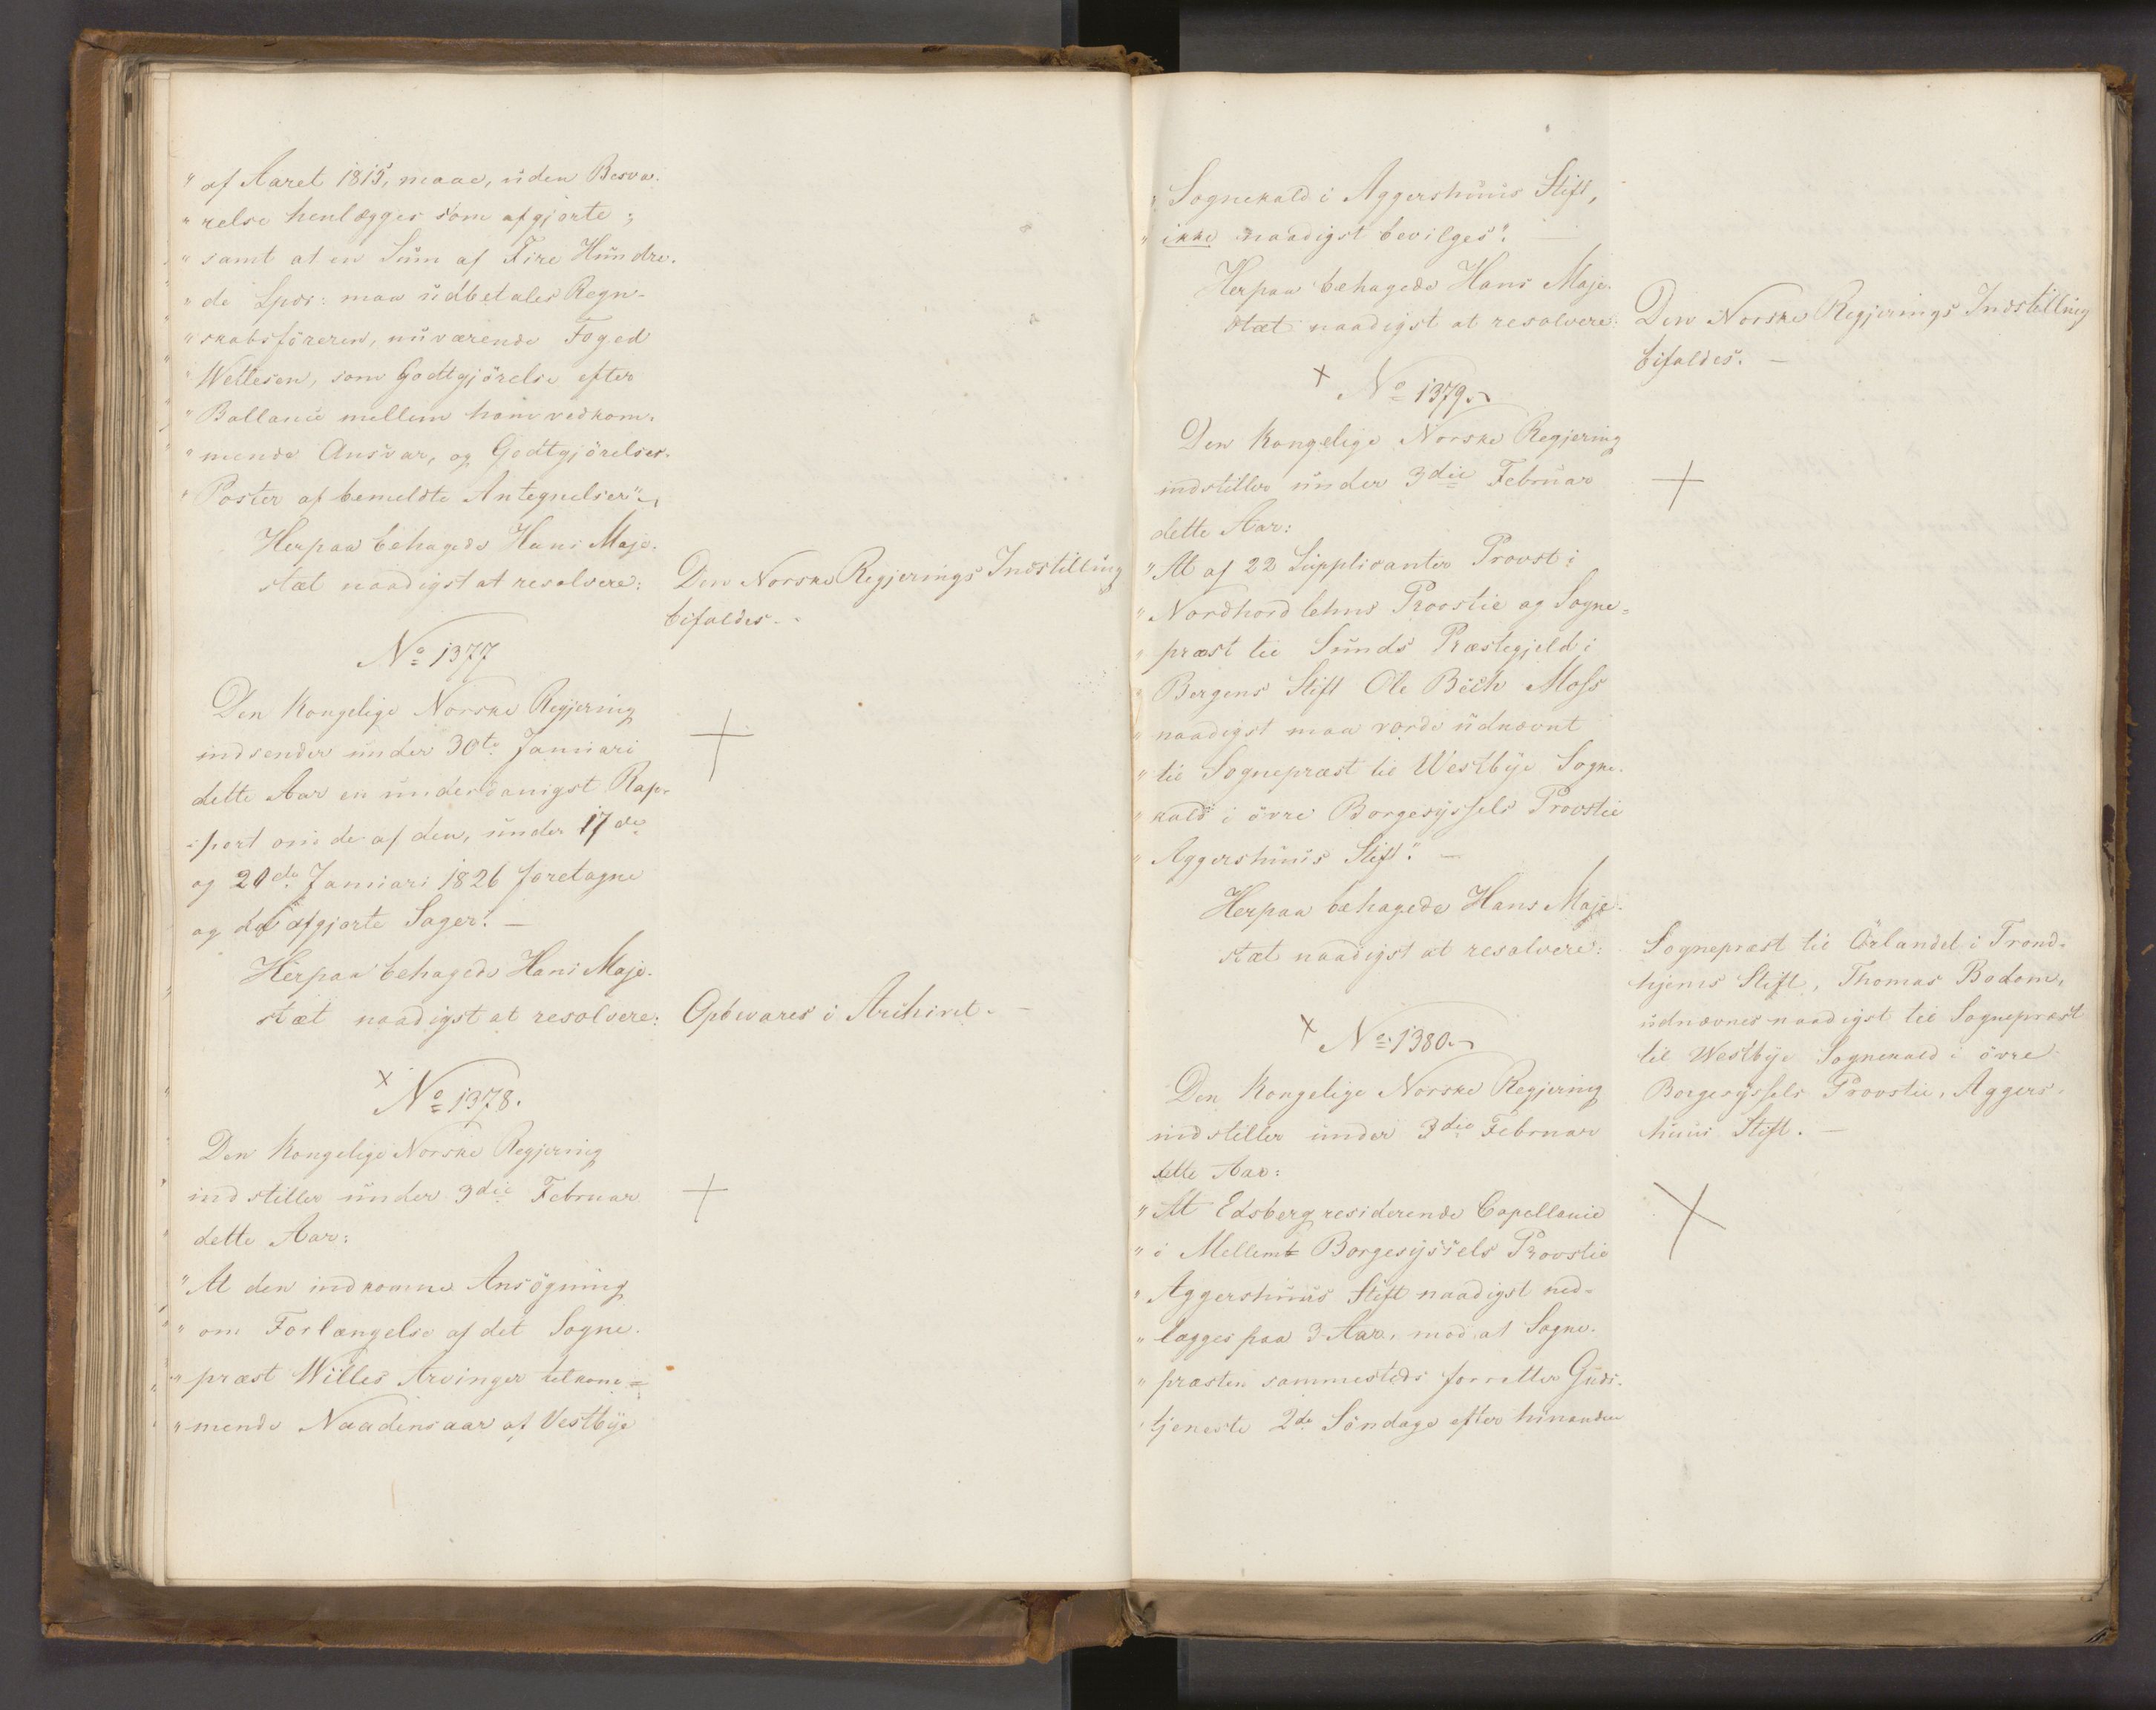 " af Aaret 1815, maae, uden Besva-
" relse henlægges som afgjorte;
" samt at en Sum af Fire Hundre-
" de Spd: maa udbetales Regn-
" skabsföreren, nuværende Foged
" Wettesen, som Godtgjörelse efter
" Ballance mellem ham vedkom-
" mende Ansvar, og Godtgjörelses-
" Poster af bemeldte Antegnelser".
Herpaa behagede Hans Maje-
stæt naadigst at resolvere:
Den Norske Regjerings Indstilling
bifaldes. -
No 1377
Den Kongelige Norske Regjering
indsender under 30te Januari
dette Aar en underdanigst Rap-
port om de af den, under 17de
og 21de Januari 1826 foretagne
og da afgjorte Sager. -
Herpaa behagede Hans Maje-
stæt naadigst at resolvere:
Opbevares i Archivet. -
x No 1378.
Den Kongelige Norske Regjering
indstiller under 3die Februar
dette Aar:
" At den indkomne Ansögning
" om Forlængelse af det Sogne-
" præst Willes Arvinger tilkom=
" mende Naadensaar af Vestbye
" Sognekald i Aggershuus Stift,
" ikke naadigst bevilges". -
Herpaa behagede Hans Maje-
stæt naadigst at resolvere:
Den Norske Regjerings Indstilling
bifaldes. -
x No 1379.
Den Kongelige Norske Regjering
indstiller under 3die Februar
dette Aar:
" At af 22 Supplicanter Provst i
" Nordhordlehns Provstie og Sogne=
" præst til Sunds Præstegjeld i
" Bergens Stift Ole Bech Moss
" naadigst maa vorde udnævnt
" til Sognepræst til Westbye Sogne-
" kald i övre Borgesyssels Provstie
" Aggershuus Stift". -
Herpaa behagede Hans Maje-
stæt naadigst at resolvere:
Sognepræst til Örlandet i Trond-
hjems Stift, Thomas Bodom,
udnævnes naadigst til Sognepræst
til Westbye Sognekald i övre
Borgesyssels Provstie, Aggers-
huus Stift. -
x No 1380.
Den Kongelige Norske Regjering
indstiller under 3die Februar
dette Aar:
" At Edsberg residerende Capellanie
" i Mellem Borgesyssels Provstie
" Aggershuus Stift naadigst ned=
" lægges paa 3 Aar, mod at Sogne-
" præsten sammesteds forretter Guds-
" tjeneste 2de Söndage efter hinanden